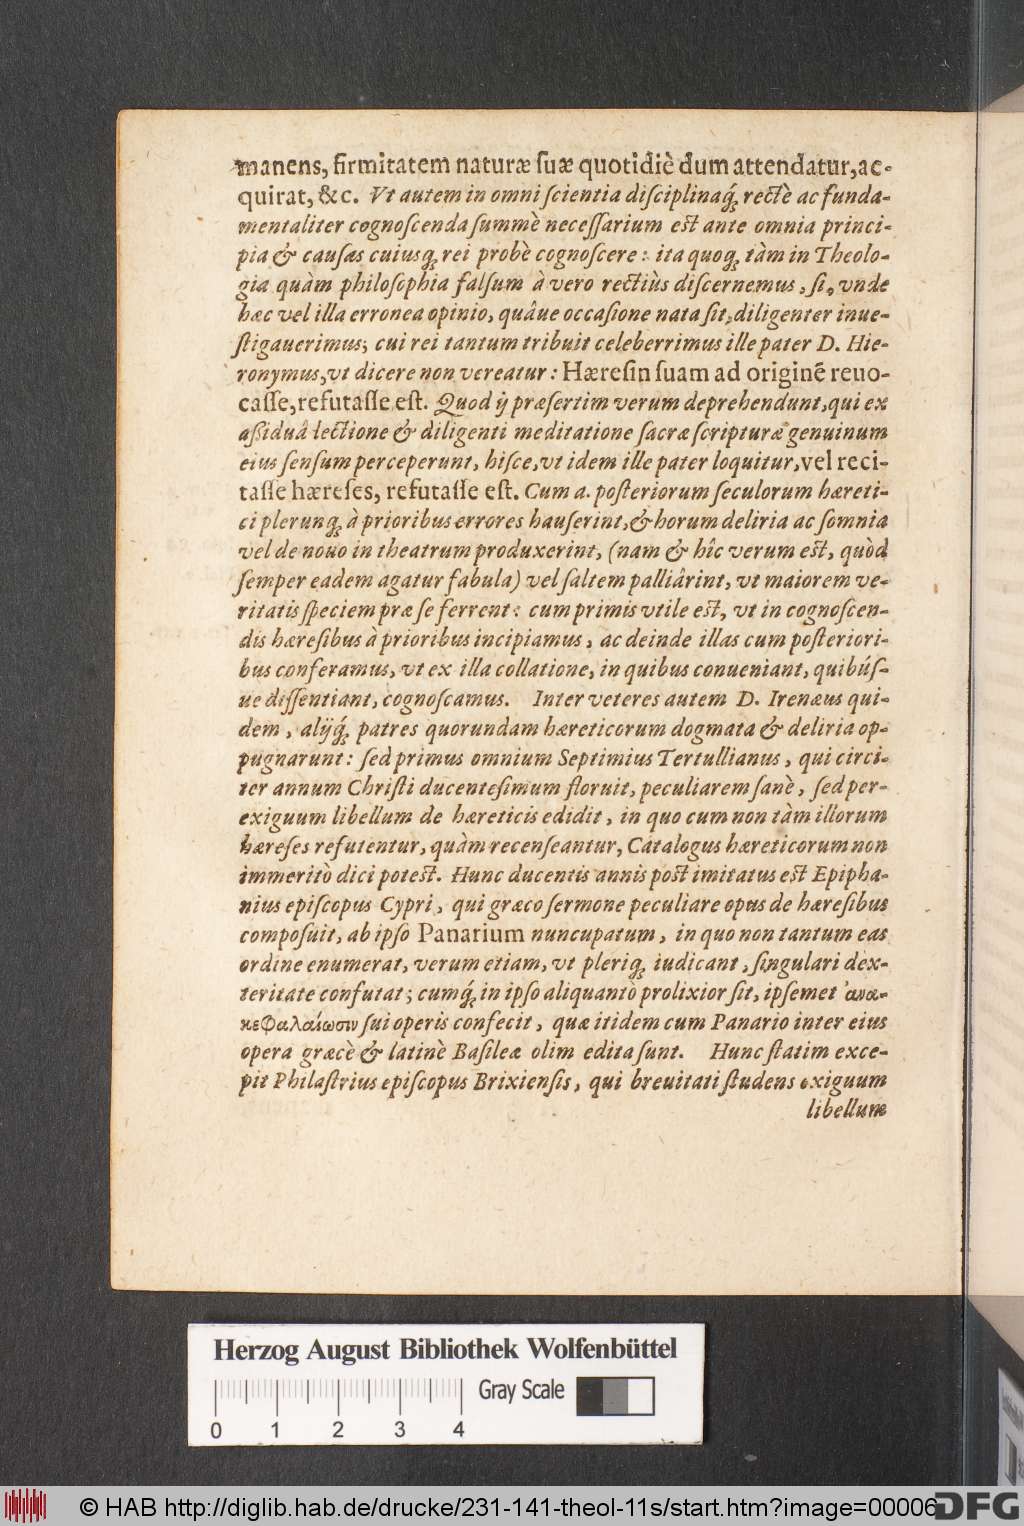 manens, firmitatem naturæ ſuæ quotidiè dum attendatur, ac-
quirat, &c. Vt autem in omni ſcientia diſciplinaq́; rectè ac funda-
mentaliter cognoſcenda ſummè neceſſarium est ante omnia princi-
pia & cauſas cuiusq; rei probè cognoſcere: ita quoq; tàm in Theolo-
gia quàm philoſophia falſum à vero rectiùs diſcernemus, ſi, vnde
hæc vel illa erronea opinio, quâue occaſione nata ſit, diligenter inue-
ſtigauerimus; cui rei tantum tribuit celeberrimus ille pater D. Hie-
ronymus, vt dicere non vereatur: Hæreſin ſuam ad originẽ reuo-
caſſe, refutaſſe eſt. Quod ij præſertim verum deprehendunt, qui ex
aßiduâ lectione & diligenti meditatione ſacræ ſcripturæ genuinum
eius ſenſum perceperunt, hiſce, vt idem ille pater loquitur, vel reci-
taſſe hæreſes, refutaſſe eſt. Cum a. poſteriorum ſeculorum hæreti-
ci plerunq; à prioribus errores hauſerint, & horum deliria ac ſomnia
vel de nouo in theatrum produxerint, (nam & hîc verum est, quòd
ſemper eadem agatur fabula) vel ſaltem palliârint, vt maiorem ve-
ritatis ſpeciem præ ſe ferrent: cum primis vtile est, vt in cognoſcen-
dis hæreſibus à prioribus incipiamus, ac deinde illas cum poſteriori-
bus conferamus, vt ex illa collatione, in quibus conueniant, quibúſ-
ue diſſentiant, cognoſcamus. Inter veteres autem D. Irenæus qui-
dem, alijq́; patres quorundam hæreticorum dogmata & deliria op-
pugnarunt: ſed primus omnium Septimius Tertullianus, qui circi-
ter annum Chriſti ducenteſimum floruit, peculiarem ſanè, ſed per-
exiguum libellum de hæreticis edidit, in quo cum non tàm illorum
hæreſes refutentur, quàm recenſeantur, Catalogus hæreticorum non
immeritò dici potest. Hunc ducentis annis post imitatus est Epipha-
nius epiſcopus Cypri, qui græco ſermone peculiare opus de hæreſibus
compoſuit, ab ipſo Panarium nuncupatum, in quo non tantum eas
ordine enumerat, verum etiam, vt pleriq; iudicant, ſingulari dex-
teritate confutat; cumq́; in ipſo aliquantò prolixior ſit, ipſemet ἀνα-
κεφαλαίωσιν ſui operis confecit, quæ itidem cum Panario inter eius
opera græcè & latinè Baſileæ olim edita ſunt. Hunc ſtatim exce-
pit Philaſtrius epiſcopus Brixienſis, qui breuitati ſtudens exiguum
libellum
Herzog August Bibliothek Wolfenbüttel
Gray Scale
0 1 2 3 4
© HAB http://diglib.hab.de/drucke/231-141-theol-11s/start.htm?image=00006
DFG